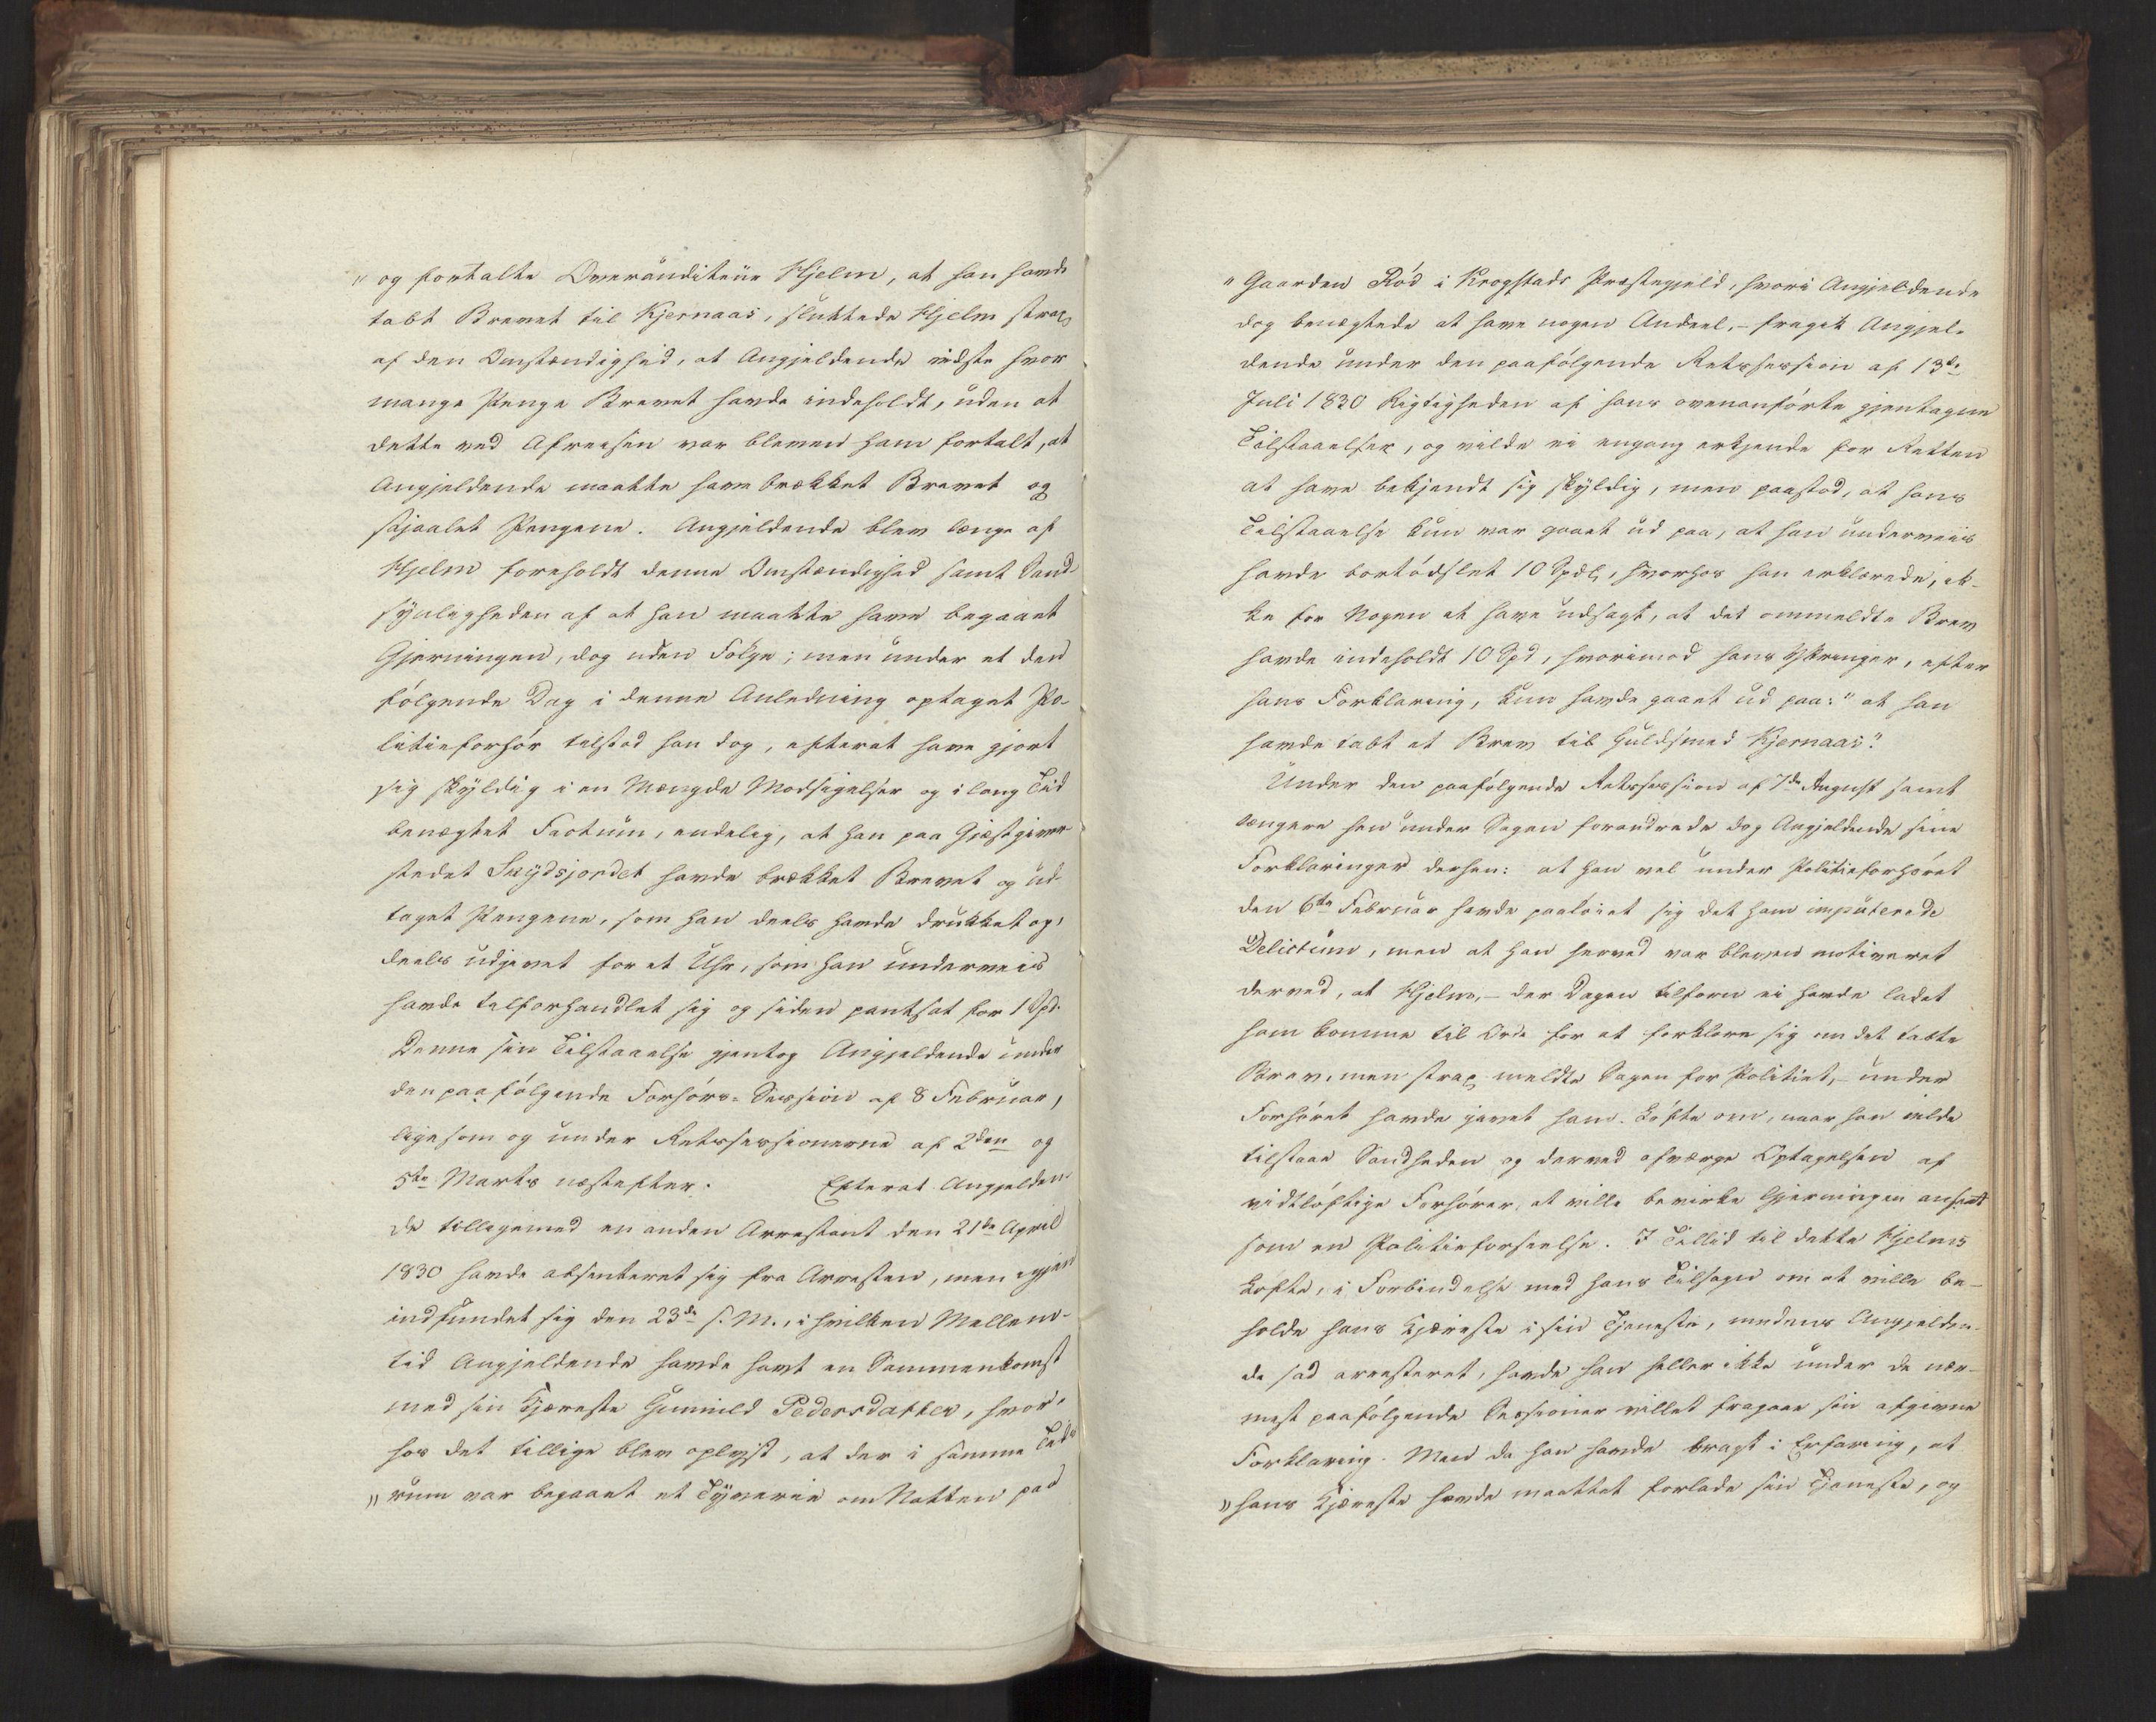 „og fortalte Overauditeur Hjelm, at han havde
tabt Brevet til Kjernaas, sluttede Hjelm strax
af den Omstændighed, at Angjeldende vidste hvor
mange Penge Brevet havde indeholdt, uden at
dette ved Afreisen var bleven ham fortalt, at
Angjeldende maatte have brækket Brevet og
stjaalet Pengene. Angjeldende blev længe af
Hjelm foreholdt denne Omstændighed samt Sand-
synligheden af at han maatte have begaaet
Gjerningen, dog uden Følge; men under et den
følgende Dag i denne Anledning optaget Po-
litieforhør tilstod han dog, efterat have gjort
sig skyldig i en Mængde Modsigelser og i lang Tid
benægtet Factum, endelig, at han paa Gjæstgiver-
stedet Skydsjordet havde brækket Brevet og ud-
taget Pengene, som han deels havde drukket op,
deels udgivet for et Uhr, som han underveis
havde tilforhandlet sig og siden pantsat for 1 Spd.
Denne sin Tilstaaelse gjentog Angjeldende under
den paafølgende Forhørs-Session af 8 Februar,
ligesom og under Retssessionerne af 2den og
5te Marts næstefter. Efterat Angjelden-
de tilligemed en anden Arrestant den 21de April
1830 havde absenteret sig fra Arresten, men igjen
indfundet sig den 23de s. M., i hvilken Mellem-
tid Angjeldende havde havt en Sammenkomst
med sin Kjæreste Gunnild Pedersdatter, hvor-
hos det tillige blev oplyst, at der i samme Tids
„rum var begaaet et Tyverie om Natten paa
„Gaarden Röd i Krogstads Præstegjeld, hvori Angjeldende
dog benægtede at have nogen Andeel,- fragik Angjel-
dende under den paafølgende Retssession af 13de
Juli 1830 Rigtigheden af hans ovenanførte gjentagne
Tilstaaelser, og vilde ei engang erkjende for Retten
at have bekjendt sig skyldig, men paastod, at hans
Tilstaaelse kun var gaaet ud paa, at han underveiis
havde bortødslet 10 Spdl, hvorhos han erklærede, ik-
ke for Nogen at have udsagt, at det ommeldte Brev
havde indeholdt 10 Spd, hvorimod hans Yttringer, efter
hans Forklaring, kun havde gaaet ud paa: "at han
havde tabt et Brev til Guldsmed Kjernaas".
Under den paafølgende Retssession af 7de August samt
længere hen under Sagen forandrede dog Angjeldende sine
Forklaringer derhen: at han vel under Politieforhøret
den 6te Februar havde paaløiet sig det ham imputerede
Delictum, men at han herved var bleven motiveret
derved, at Hjelm,- der Dagen tilforn ei havde ladet
ham komme til Orde for at forklare sig om det tabte
Brev, men strax meldte Sagen for Politiet,- under
Forhøret havde givet ham Løfte om, naar han vilde
tilstaae Sandheden og derved afværge Optagelsen af
vidtløftige Forhører, at ville bevirke Gjerningen anseet
som en Politieforseelse. I Tillid til dette Hjelms
Løfte, i Forbindelse med hans Tilsagn om at ville be-
holde hans Kjæreste i sin Tjeneste, medens Angjelden-
de sad arresteret, havde han heller ikke under de nær-
mest paafølgende Sessioner villet fragaae sin afgivne
Forklaring. Men da han havde bragt i Erfaring, at
„hans Kjæreste havde maattet forlade sin Tjeneste, og